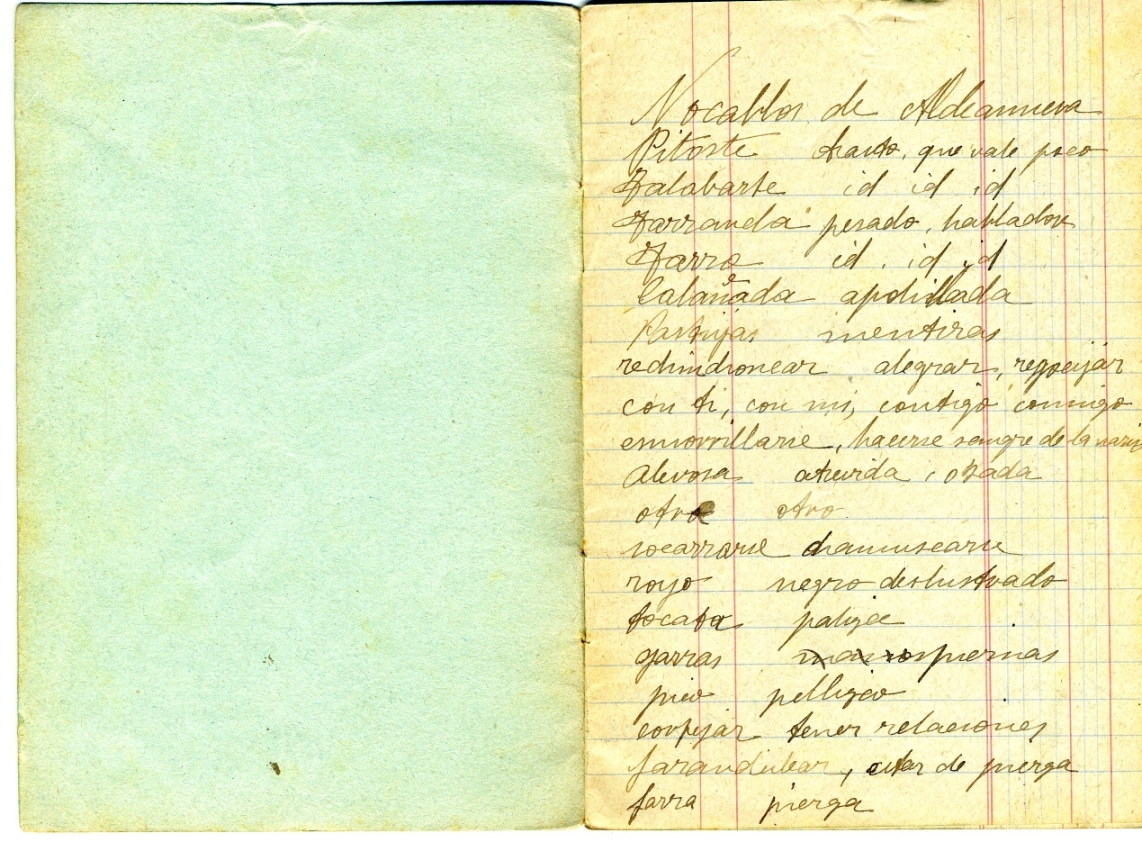 Vocablos de Aldeanueva
Pitoste trasto, que vale poco
Zalabarte id id id
Zarranda pesado, hablador
Zarro id. id. id
Calañada apolillada
Partijas mentiras
redindionear alegrar, regocijar
con ti, con mi, contigo conmigo
enmorrillarse, hacerse sangre de la nariz
Alevosa atrevida, osada
otro
socarrarse chamuscarse
royo negro deslustrado
tocata paliza
garras piernas
pico pellizco
tener relaciones
farandulear, estar de juerga
farra juerga